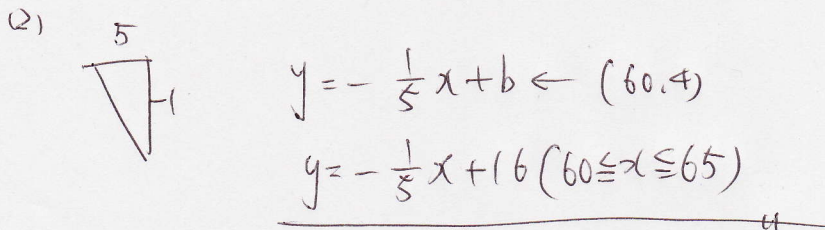 (2)
5
-1
y = - 1/5 x + b ← (60.4)
y = - 1/5 x + 16 (60 ≦ x ≦ 65)